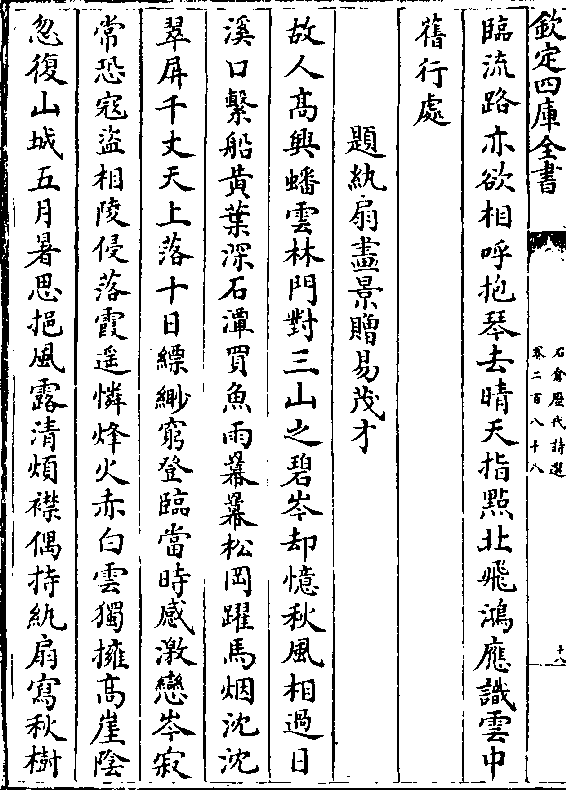 欽定四庫全書
石倉歷代詩選
卷二百八十八
十八
臨流路亦欲相呼抱琴去晴天指點北飛鴻應識雲中
舊行處
題紈扇畫景贈易茂才
故人髙興蟠雲林門對三山之碧岑却憶秋風相過日
溪口繫船黄葉深石潭買魚雨冪冪松岡躍馬烟沈沈
翠屏千丈天上落十日縹緲窮登臨當時感激戀岑寂
常恐宼盜相陵侵落霞遥憐烽火赤白雲獨擁髙崖陰
忽復山城五月暑思挹風露清煩襟偶持紈扇寫秋樹